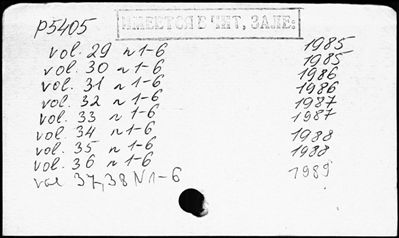 P5405
ИМЕЕТСЯ В ЧИТ, ЗАЛЕ:
vol. 29 n 1-6 1985
vol. 30 n 1-6 1985
vol. 31 n 1-6 1986
vol. 32 n 1-6 1986
vol. 33 n 1-6 1987
vol. 34 n 1-6 1987
vol. 35 n 1-6 1988
vol. 36 n 1-6 1988
vol 37,38 N 1-6 1989